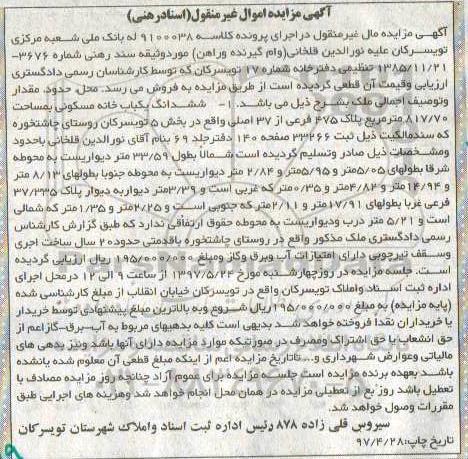 آگهی مزایده اموال غیرمنقول(اسنادرهنی)
آگهی مزایده مال غیرمنقول دراجرای پرونده کلاسه ۹۱۰۰۰۳۸ له بانک ملی شعبه مرکزی
تویسرکان علیه نورالدین قلخانی(وام گیرنده وراهن) موردوثیقه سند رهنی شماره ۳۶۷۶-
۱۳۸۵/۱۱/۲۱ تنظیمی دفترخانه شماره۱۷ تویسرکان که توسط کارشناسان رسمی دادگستری
ارزیابی وقیمت آن قطعی گردیده است از طریق مزایده به فروش می رسد. محل، حدود، مقدار
وتوصیف اجمالی ملک بشرح ذیل می باشد. ۱- ششدانگ یکباب خانه مسکونی بمساحت
۸۱۷/۷۰ مترمربع پلاک ۴۷۵ فرعی از ۳۷ اصلی واقع در بخش ۵ تویسرکان روستای چاشتخوره
که سندمالکیت ذیل ثبت ۳۳۲۶۶ صفحه ۱۴۰ دفترجلد ۶۹ بنام آقای نورالدین قلخانی باحدود
ومشخصات ذیل صادر وتسلیم گردیده است شمالاً بطول ۳۳/۵۹ متر دیواریست به محوطه
شرقا بطولهای ۵/۰۵متر و۵/۹۵متر و ۲/۸۴ متر دیواریست به محوطه جنوبا بطولهای ۸/۱۳ متر
و۱۴/۹۴متر و۴/۸۲متر و۰/۳۵متر که غربی است و۳/۳۹متر دیواربه دیوار پلاک ۳۷/۳۳۵
فرعی غربا بطولهای ۱۷/۹۱متر و۲/۱۱متر که جنوبی است و۲/۲۵متر و۱/۳۵متر که شمالی
است و ۵/۲۱ متر درب ودیواریست به محوطه حقوق ارتفاقی ندارد که طبق گزارش کارشناس
رسمی دادگستری ملک مذکور واقع در روستای چاشتخوره باقدمتی حدود۲۰ سال ساخت آجری
وسقف تیرچوبی دارای امتیازات آب وبرق وگاز ومبلغ ۱۹۵/۰۰۰/۰۰۰ریال ارزیابی گردیده
است. جلسه مزایده در روزچهارشنبه مورخ ۱۳۹۷/۵/۲۴ از ساعت ۹ الی ۱۲ درمحل اجرای
اداره ثبت اسناد واملاک تویسرکان واقع در تویسرکان خیابان انقلاب از مبلغ کارشناسی شده
(پایه مزایده) به مبلغ ۱۹۵/۰۰۰/۰۰۰ریال شروع وبه بالاترین مبلغ پیشنهادی توسط خریدار
یا خریداران نقدا فروخته خواهد شد بدیهی است کلیه بدهیهای مربوط به آب-برق-گازاعم از
حق انشعاب یا حق اشتراک ومصرف در صورتیکه مورد مزایده دارای آنها باشد ونیز بدهی های
مالیاتی وعوارض شهرداری و... تاتاریخ مزایده اعم از اینکه مبلغ قطعی آن معلوم شده یانشده
باشد بعهده برنده مزایده است جلسه مزایده برای عموم آزاد چنانچه روز مزایده مصادف با
تعطیل باشد روز بع ز تعطیلی مزایده در همان محل انجام خواهد شد وهزینه های اجرایی طبق
مقررات وصول خواهد شد.
سیروس قلی زاده ۸۷۸ رئیس اداره ثبت اسناد واملاک شهرستان تویسرکان
تاریخ چاپ: ۹۷/۴/۲۸